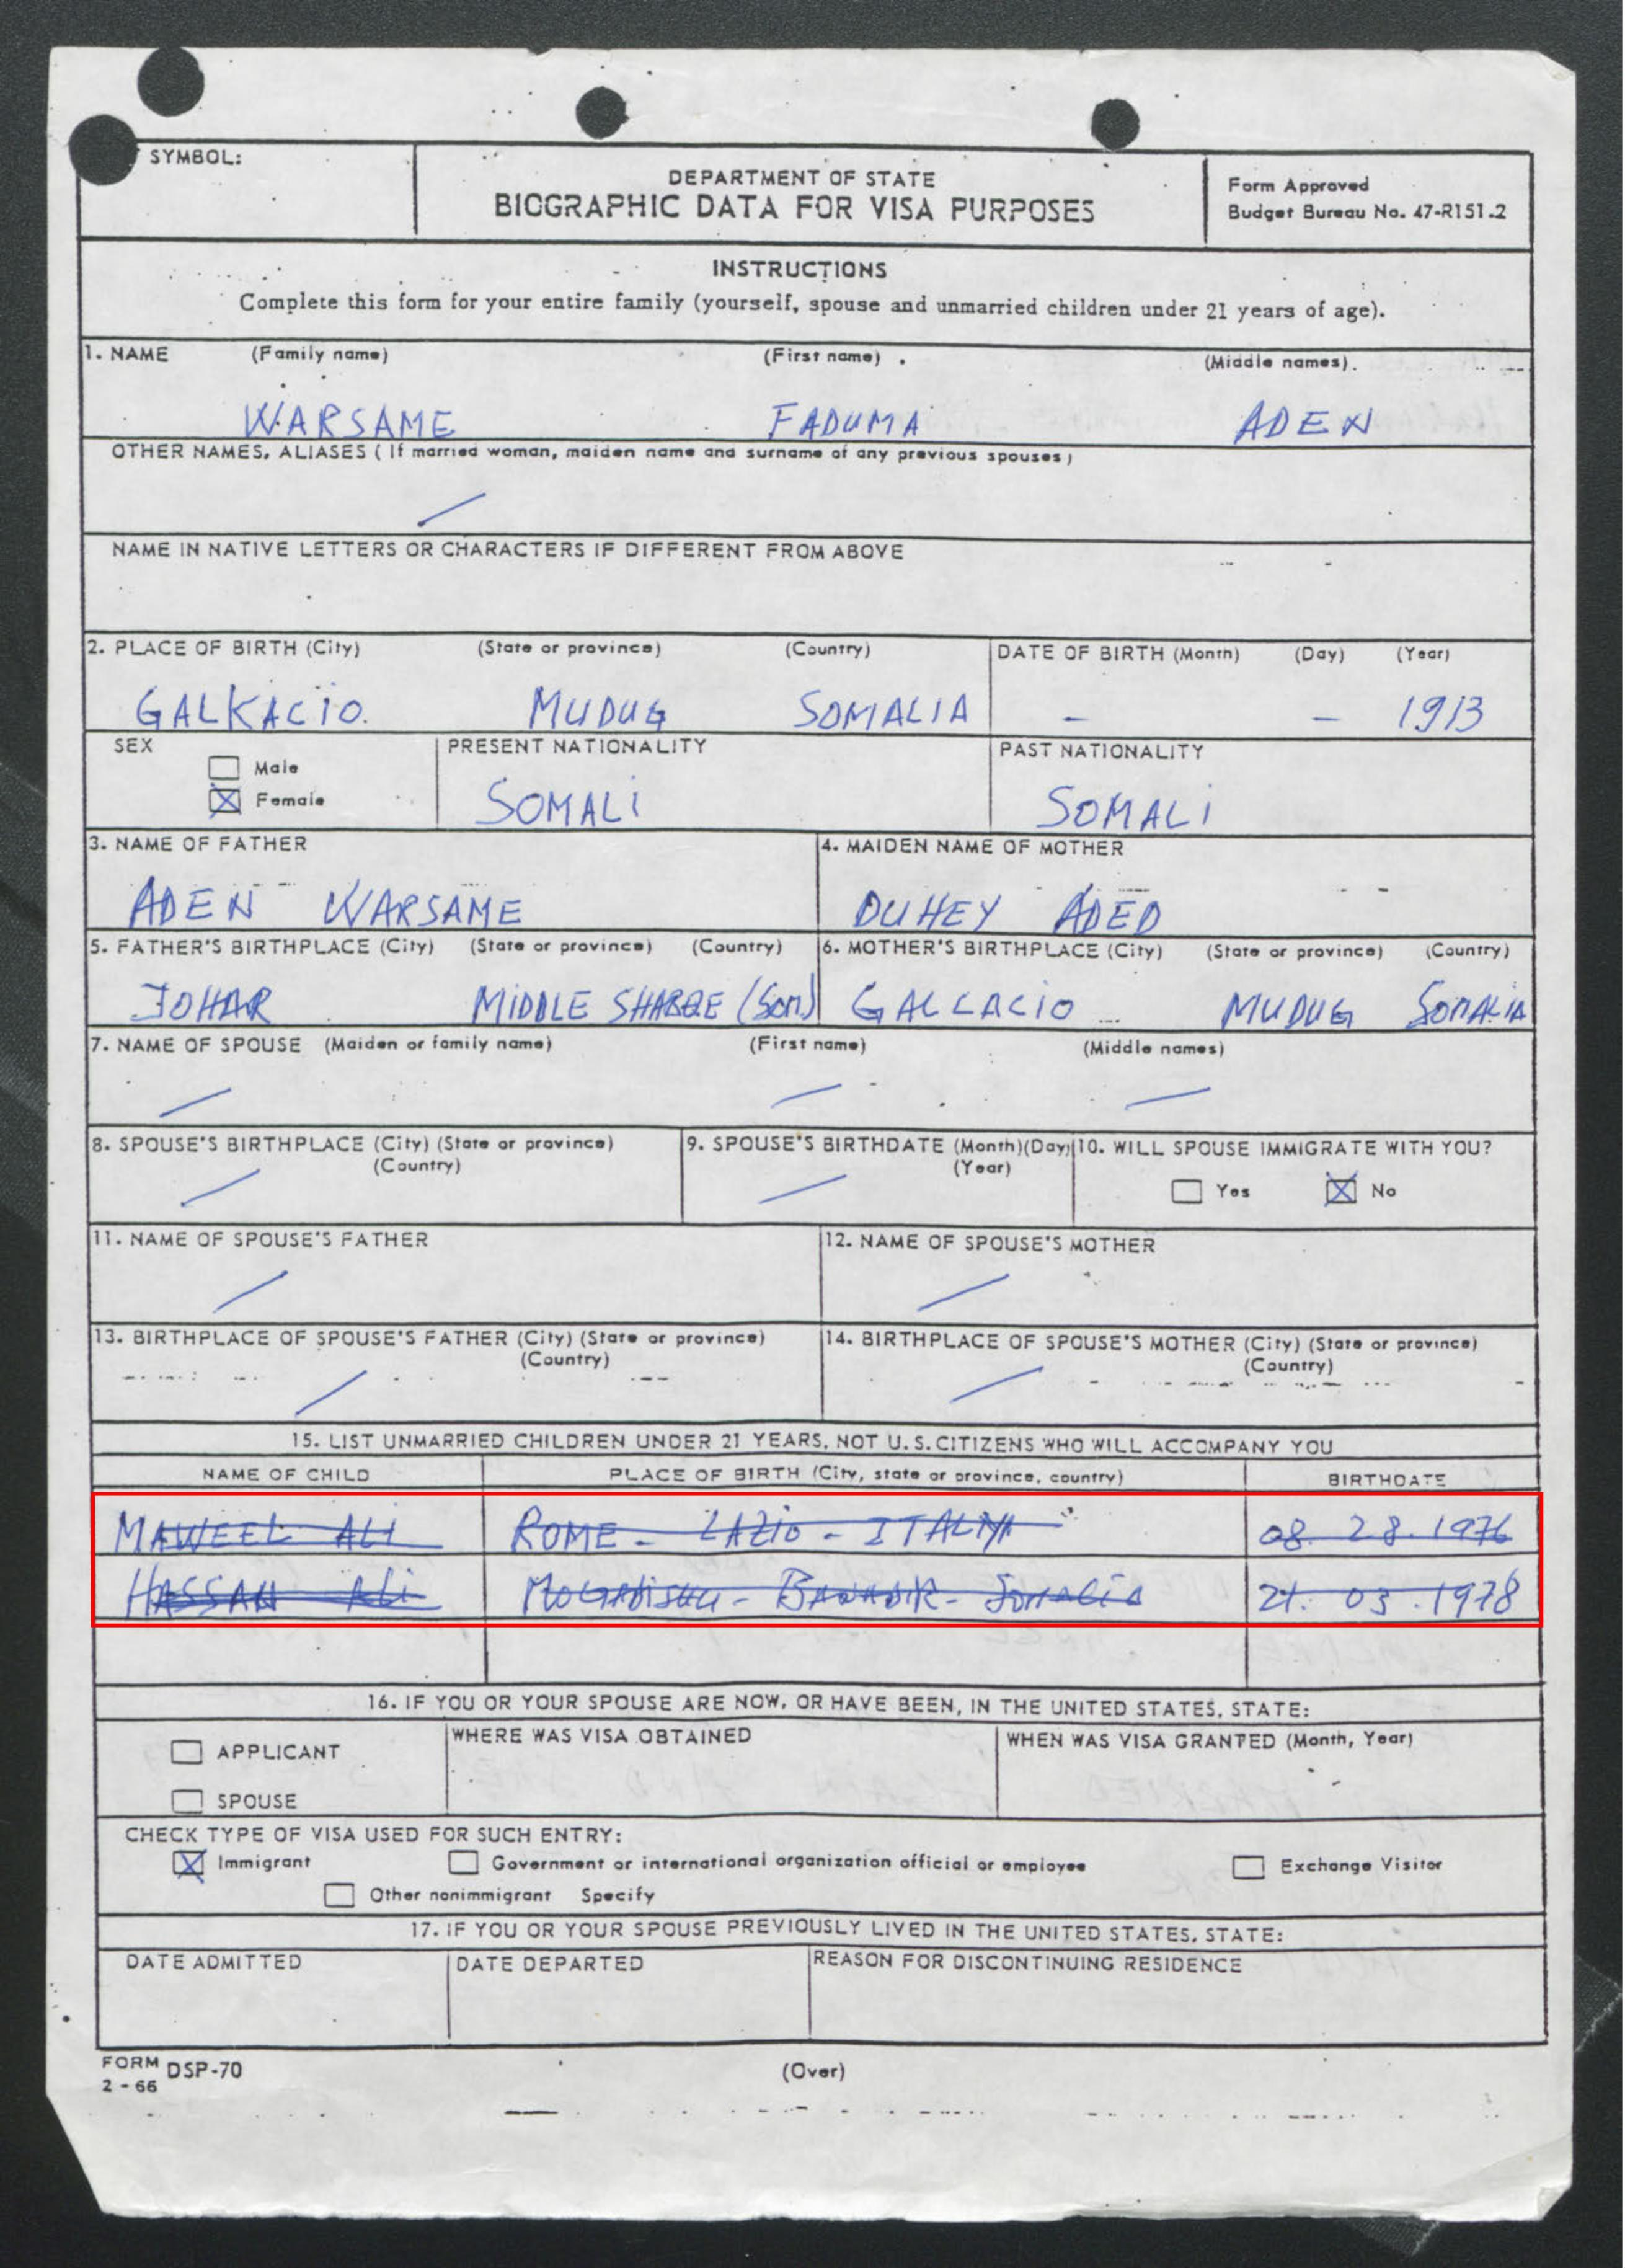 SYMBOL:
DEPARTMENT OF STATE
BIOGRAPHIC DATA FOR VISA PURPOSES
Form Approved
Budget Bureau No. 47-R151.2
INSTRUCTIONS
Complete this form for your entire family (yourself, spouse and unmarried children under 21 years of age).
1. NAME (Family name) (First name) (Middle names)
WARSAME FADUMA ADEN
OTHER NAMES, ALIASES (If married woman, maiden name and surname of any previous spouses)
NAME IN NATIVE LETTERS OR CHARACTERS IF DIFFERENT FROM ABOVE
2. PLACE OF BIRTH (City) (State or province) (Country) DATE OF BIRTH (Month) (Day) (Year)
GALKACIO. MUDUG SOMALIA - - 1913
SEX PRESENT NATIONALITY PAST NATIONALITY
Male
Female
SOMALI SOMALI
3. NAME OF FATHER 4. MAIDEN NAME OF MOTHER
ADEN WARSAME DUHEY ADED
5. FATHER'S BIRTHPLACE (City) (State or province) (Country) 6. MOTHER'S BIRTHPLACE (City) (State or province) (Country)
JOHAR MIDDLE (Som) GALCACIO MUDUG SOMALIA
7. NAME OF SPOUSE (Maiden or family name) (First name) (Middle names)
8. SPOUSE'S BIRTHPLACE (City) (State or province) (Country)
9. SPOUSE'S BIRTHDATE (Month)(Day) (Year)
10. WILL SPOUSE IMMIGRATE WITH YOU?
Yes No
11. NAME OF SPOUSE'S FATHER 12. NAME OF SPOUSE'S MOTHER
13. BIRTHPLACE OF SPOUSE'S FATHER (City) (State or province) (Country)
14. BIRTHPLACE OF SPOUSE'S MOTHER (City) (State or province) (Country)
15. LIST UNMARRIED CHILDREN UNDER 21 YEARS, NOT U.S. CITIZENS WHO WILL ACCOMPANY YOU
NAME OF CHILD PLACE OF BIRTH (City, state or province, country) BIRTHDATE
MAWEEL ALI ROME - LAZIO - 08. 28. 1976
HASSAN ALI - - Somalia 21. 03. 1978
16. IF YOU OR YOUR SPOUSE ARE NOW, OR HAVE BEEN, IN THE UNITED STATES, STATE:
APPLICANT
SPOUSE
WHERE WAS VISA OBTAINED WHEN WAS VISA GRANTED (Month, Year)
CHECK TYPE OF VISA USED FOR SUCH ENTRY:
Immigrant Government or international organization official or employee Exchange Visitor
Other nonimmigrant Specify
17. IF YOU OR YOUR SPOUSE PREVIOUSLY LIVED IN THE UNITED STATES, STATE:
DATE ADMITTED DATE DEPARTED REASON FOR DISCONTINUING RESIDENCE
FORM DSP-70
2 - 66
(Over)